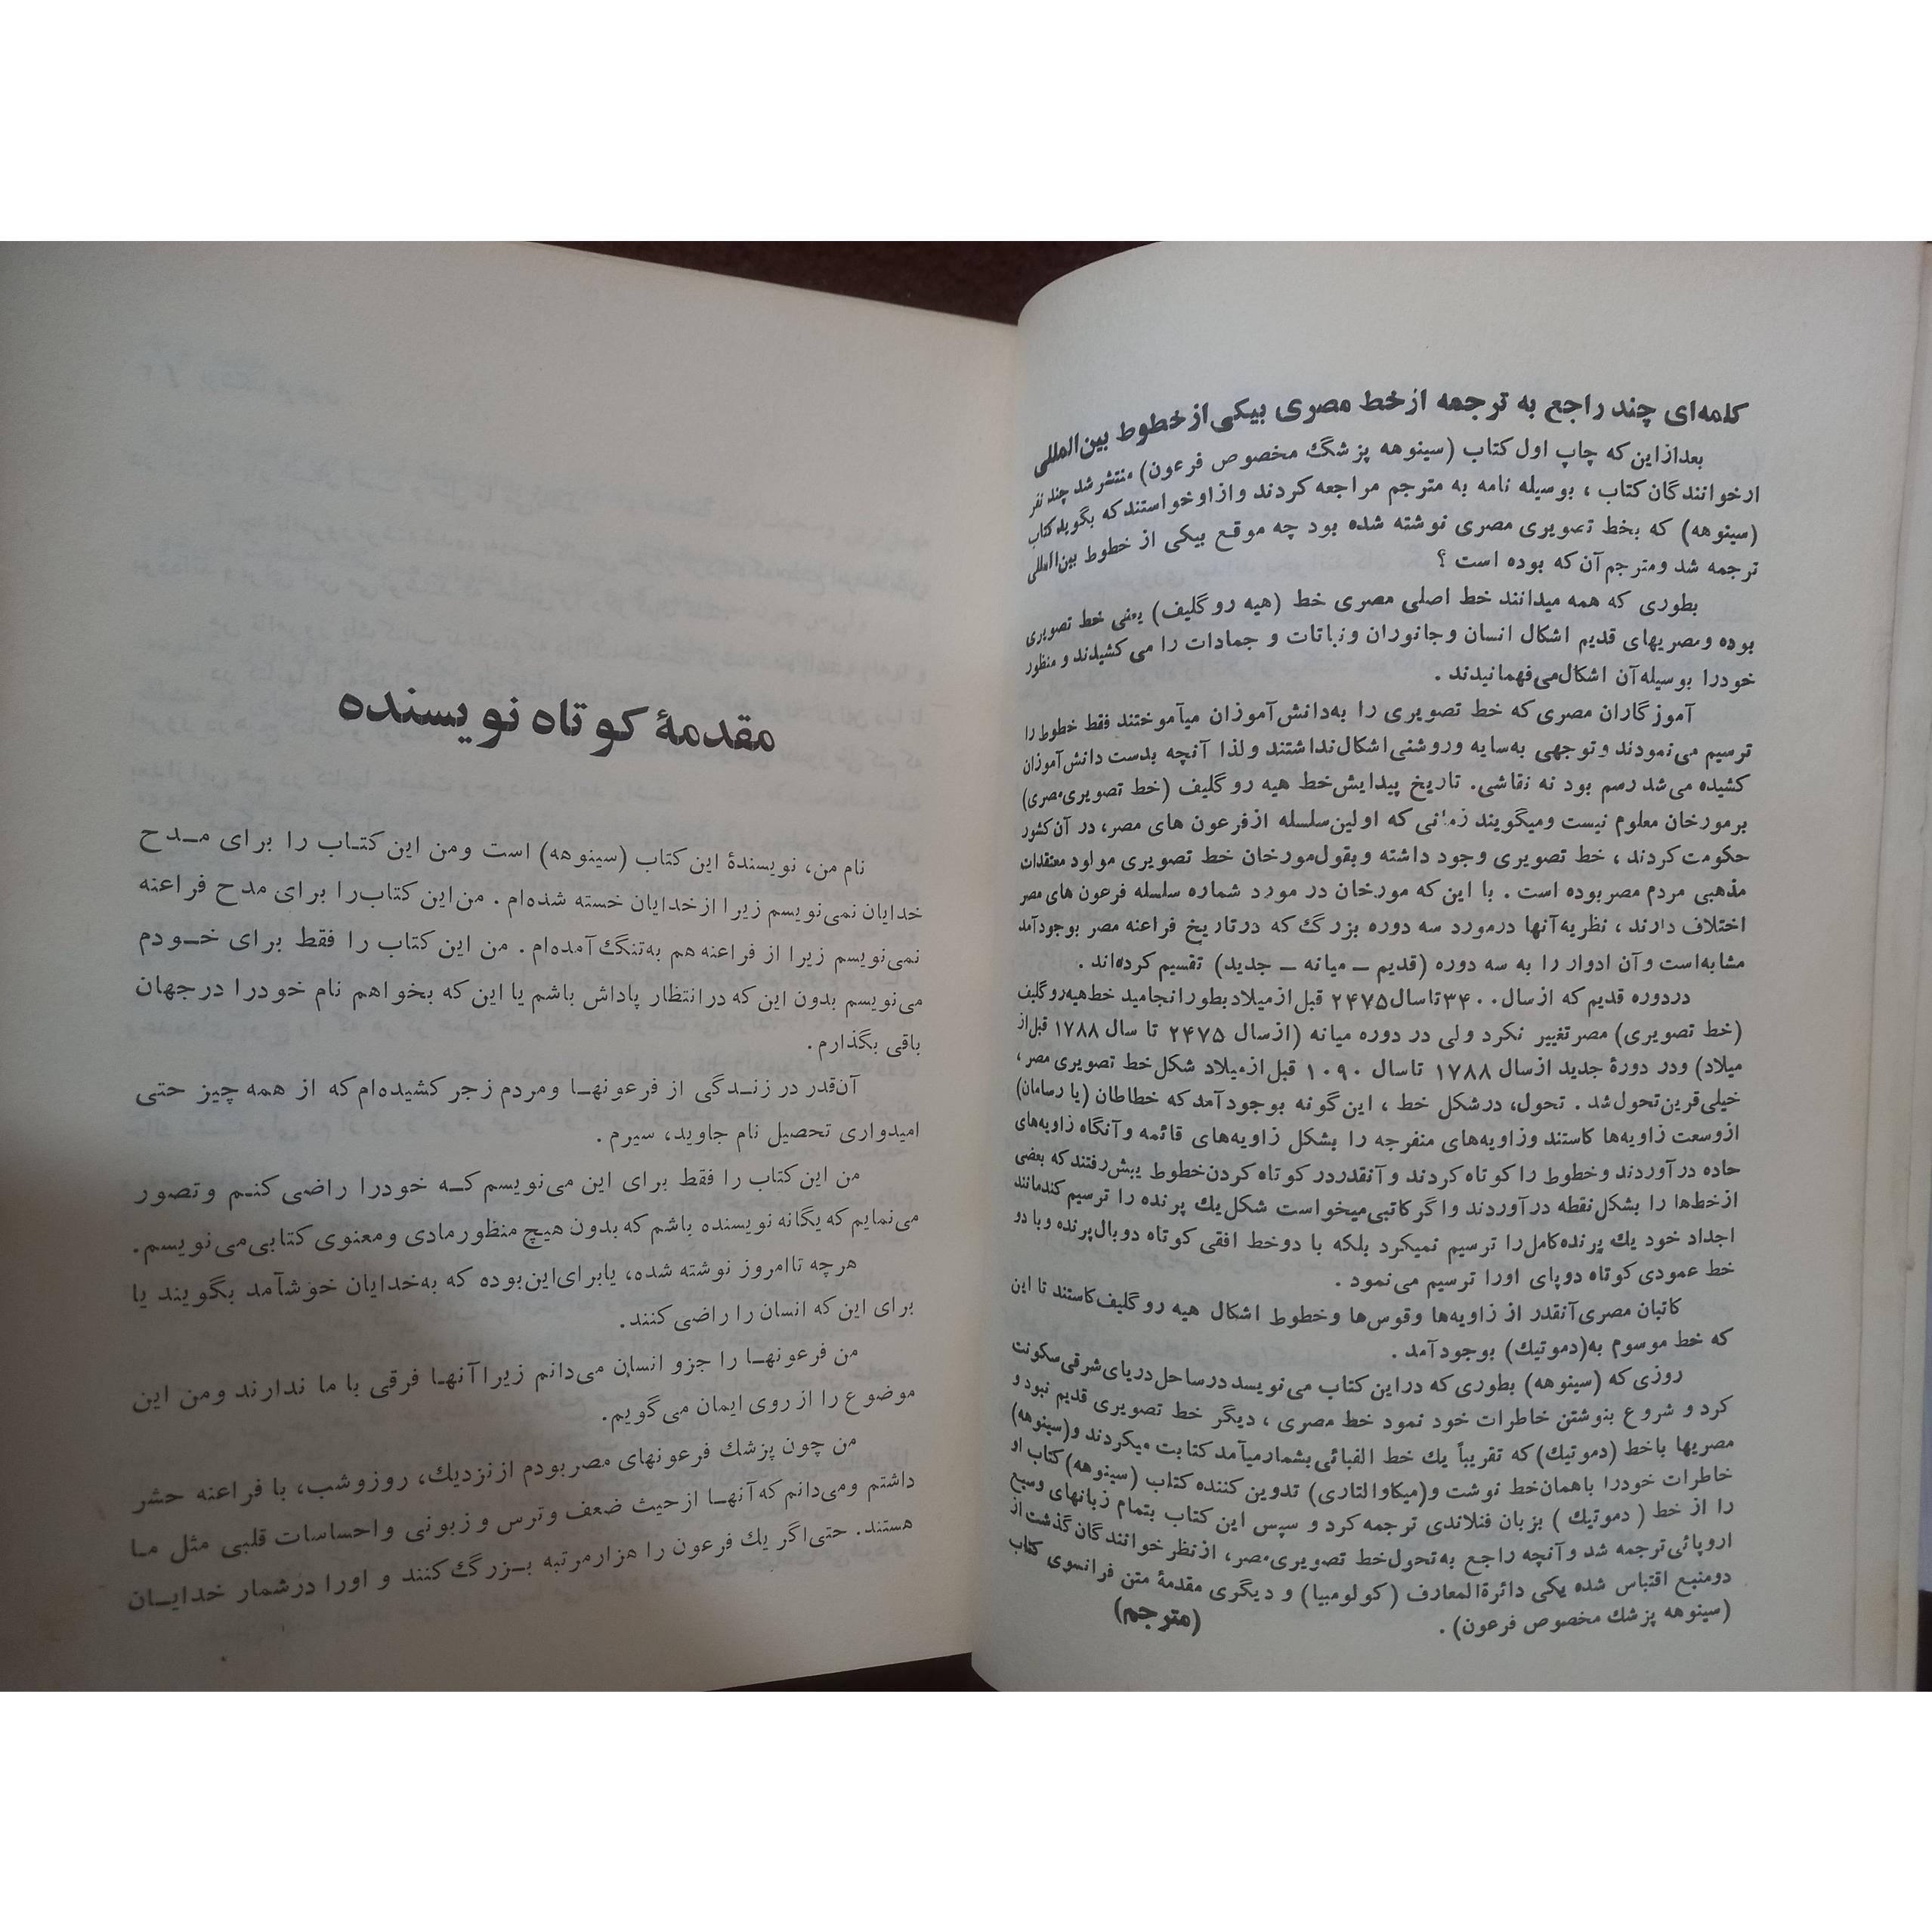 کلمه‌ای چند راجع به ترجمه از خط مصری بیکی از خطوط بین‌المللی
بعد از این که چاپ اول کتاب (سینوهه پزشگ مخصوص فرعون) منتشر شد چند نفر
از خوانندگان کتاب ، بوسیله نامه به مترجم مراجعه کردند و از او خواستند که بگوید کتاب
(سینوهه) که بخط تصویری مصری نوشته شده بود چه موقع بیکی از خطوط بین‌المللی
ترجمه شد و مترجم آن که بوده است ؟
بطوری که همه میدانند خط اصلی مصری خط (هیه رو گلیف) یعنی خط تصویری
بوده و مصریهای قدیم اشکال انسان و جانوران و نباتات و جمادات را می کشیدند و منظور
خود را بوسیله آن اشکال می‌فهمانیدند .
آموزگاران مصری که خط تصویری را به‌دانش‌آموزان میآموختند فقط خطوط را
ترسیم می‌نمودند و توجهی به‌سایه و روشنی اشکال نداشتند و لذا آنچه بدست دانش‌آموزان
کشیده می‌شد رسم بود نه نقاشی. تاریخ پیدایش خط هیه رو گلیف (خط تصویری مصری)
بر مورخان معلوم نیست و میگویند زمانی که اولین سلسله از فرعون های مصر، در آن کشور
حکومت کردند ، خط تصویری وجود داشته و بقول مورخان خط تصویری مولود معتقدات
مذهبی مردم مصر بوده است . با این که مورخان در مورد شماره سلسله فرعون های مصر
اختلاف دارند ، نظریه آنها در مورد سه دوره بزرگ که در تاریخ فراعنه مصر بوجود آمد
مشابه‌است و آن ادوار را به سه دوره (قدیم – میانه – جدید) تقسیم کرده‌اند .
در دوره قدیم که از سال ۳۴۰۰ تا سال ۲۴۷۵ قبل از میلاد بطور انجامید خط هیه رو گلیف
(خط تصویری) مصر تغییر نکرد ولی در دوره میانه (از سال ۲۴۷۵ تا سال ۱۷۸۸ قبل از
میلاد) و در دورهٔ جدید از سال ۱۷۸۸ تا سال ۱۰۹۰ قبل از میلاد شکل خط تصویری مصر ،
خیلی قرین تحول شد . تحول، در شکل خط ، این گونه بوجود آمد که خطاطان (یا رسامان)
از وسعت زاویه‌ها کاستند و زاویه‌های منفرجه را بشکل زاویه‌های قائمه و آنگاه زاویه‌های
حاده در آوردند و خطوط را کوتاه کردند و آنقدر در کوتاه کردن خطوط پیش رفتند که بعضی
از خط‌ها را بشکل نقطه در آوردند و اگر کاتبی میخواست شکل یك پرنده را ترسیم کند مانند
اجداد خود یك پرنده کامل را ترسیم نمیکرد بلکه با دو خط افقی کوتاه دو بال پرنده و با دو
خط عمودی کوتاه دو پای او را ترسیم می‌نمود .
کاتبان مصری آنقدر از زاویه‌ها و قوس‌ها و خطوط اشکال هیه رو گلیف کاستند تا این
که خط موسوم به (دموتیك) بوجود آمد .
روزی که (سینوهه) بطوری که در این کتاب می‌نویسد در ساحل دریای شرقی سکونت
کرد و شروع بنوشتن خاطرات خود نمود خط مصری ، دیگر خط تصویری قدیم نبود و
مصریها با خط (دموتیك) که تقریباً یك خط الفبائی بشمار میآمد کتابت میکردند و (سینوهه)
خاطرات خود را با همان خط نوشت و (میکا والتاری) تدوین کننده کتاب (سینوهه) کتاب او
را از خط ( دموتیك ) بزبان فنلاندی ترجمه کرد و سپس این کتاب بتمام زبانهای وسیع
اروپائی ترجمه شد و آنچه راجع به تحول خط تصویری مصر، از نظر خوانندگان گذشت از
دو منبع اقتباس شده یکی دائرة‌المعارف ( کولومبیا) و دیگری مقدمهٔ متن فرانسوی کتاب
(سینوهه پزشك مخصوص فرعون) .
(مترجم)
مقدمهٔ کوتاه نویسنده
نام من، نویسندهٔ این کتاب (سینوهه) است ومن این کتـاب را برای مـدح
خدایان نمی‌نویسم زیرا از خدایان خسته شده‌ام . من این کتاب را برای مدح فراعنه
نمی‌نویسم زیرا از فراعنه هم به‌تنگ آمده‌ام . من این کتاب را فقط برای خـودم
می‌نویسم بدون این که در انتظار پاداش باشم یا این که بخواهم نام خود را در جهان
باقی بگذارم .
آن‌قدر در زنـدگی از فرعونهـا ومردم زجر کشیده‌ام که از همه چیز حتی
امیدواری تحصیل نام جاوید، سیرم .
من این کتاب را فقط برای این می‌نویسم کـه خود را راضی کنـم و تصور
می‌نمایم که یگانه نویسنده باشم که بدون هیچ منظور مادی و معنوی کتابی می‌نویسم.
هرچه تا امروز نوشته شده، یا برای این بوده که به‌خدایان خوشآمد بگویند یا
برای این که انسان را راضی کنند.
من فرعونهـا را جزو انسان می‌دانم زیرا آنهـا فرقی با ما ندارند ومن این
موضوع را از روی ایمان می‌گویم.
من چون پزشك فرعونهای مصر بودم از نزدیك، روز و شب، با فراعنه حشر
داشتم ومی‌دانم که آنهـا از حیث ضعف و ترس و زبونی و احساسات قلبی مثل مـا
هستند. حتی اگر یك فرعون را هزار مرتبه بـزرگ کنند و او را در شمار خدایـان